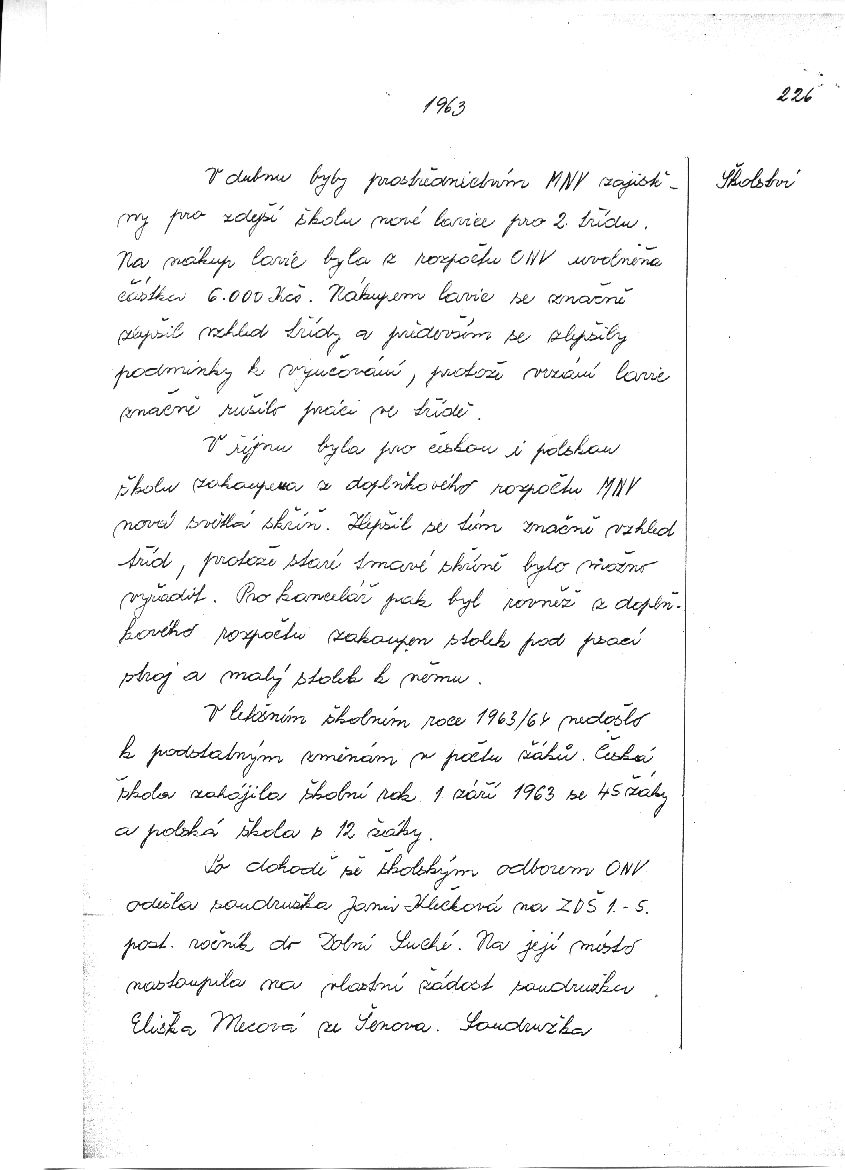 226
1963
Školství
V dubnu byly prostřednictvím MNV zajiště-
ny pro zdejší školu nové lavice pro 2. třídu.
Na nákup lavic byla z rozpočtu ONV uvolněna
částka 6.000 Kčs. Nákupem lavic se značně
zlepšil vzhled třídy a především se zlepšily
podmínky k vyučování, protože vrzání lavic
značně rušilo práci ve třídě.
V říjnu byla pro českou i polskou
školu zakoupena z doplňkového rozpočtu MNV
nová světlá skříň. Zlepšil se tím značně vzhled
tříd, protože staré tmavé skříně bylo možno
vyřadit. Pro kancelář pak byl rovněž z doplň-
kového rozpočtu zakoupen stolek pod psací
stroj a malý stolek k němu.
V letošním školním roce 1963/64 nedošlo
k podstatným změnám v počtu žáků. Česká
škola zahájila školní rok 1 září 1963 se 45 žáky
a polská škola s 12 žáky.
Po dohodě se školským odborem ONV
odešla soudružka Klečková na ZDŠ 1.-5.
post. ročník do Dolní Suché. Na její místo
nastoupila na vlastní žádost soudružka
Eliška Mecová ze Šenova. Soudružka